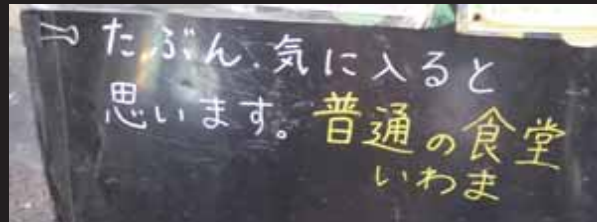 たぶん.気に入ると
思います。普通の食堂
いわま